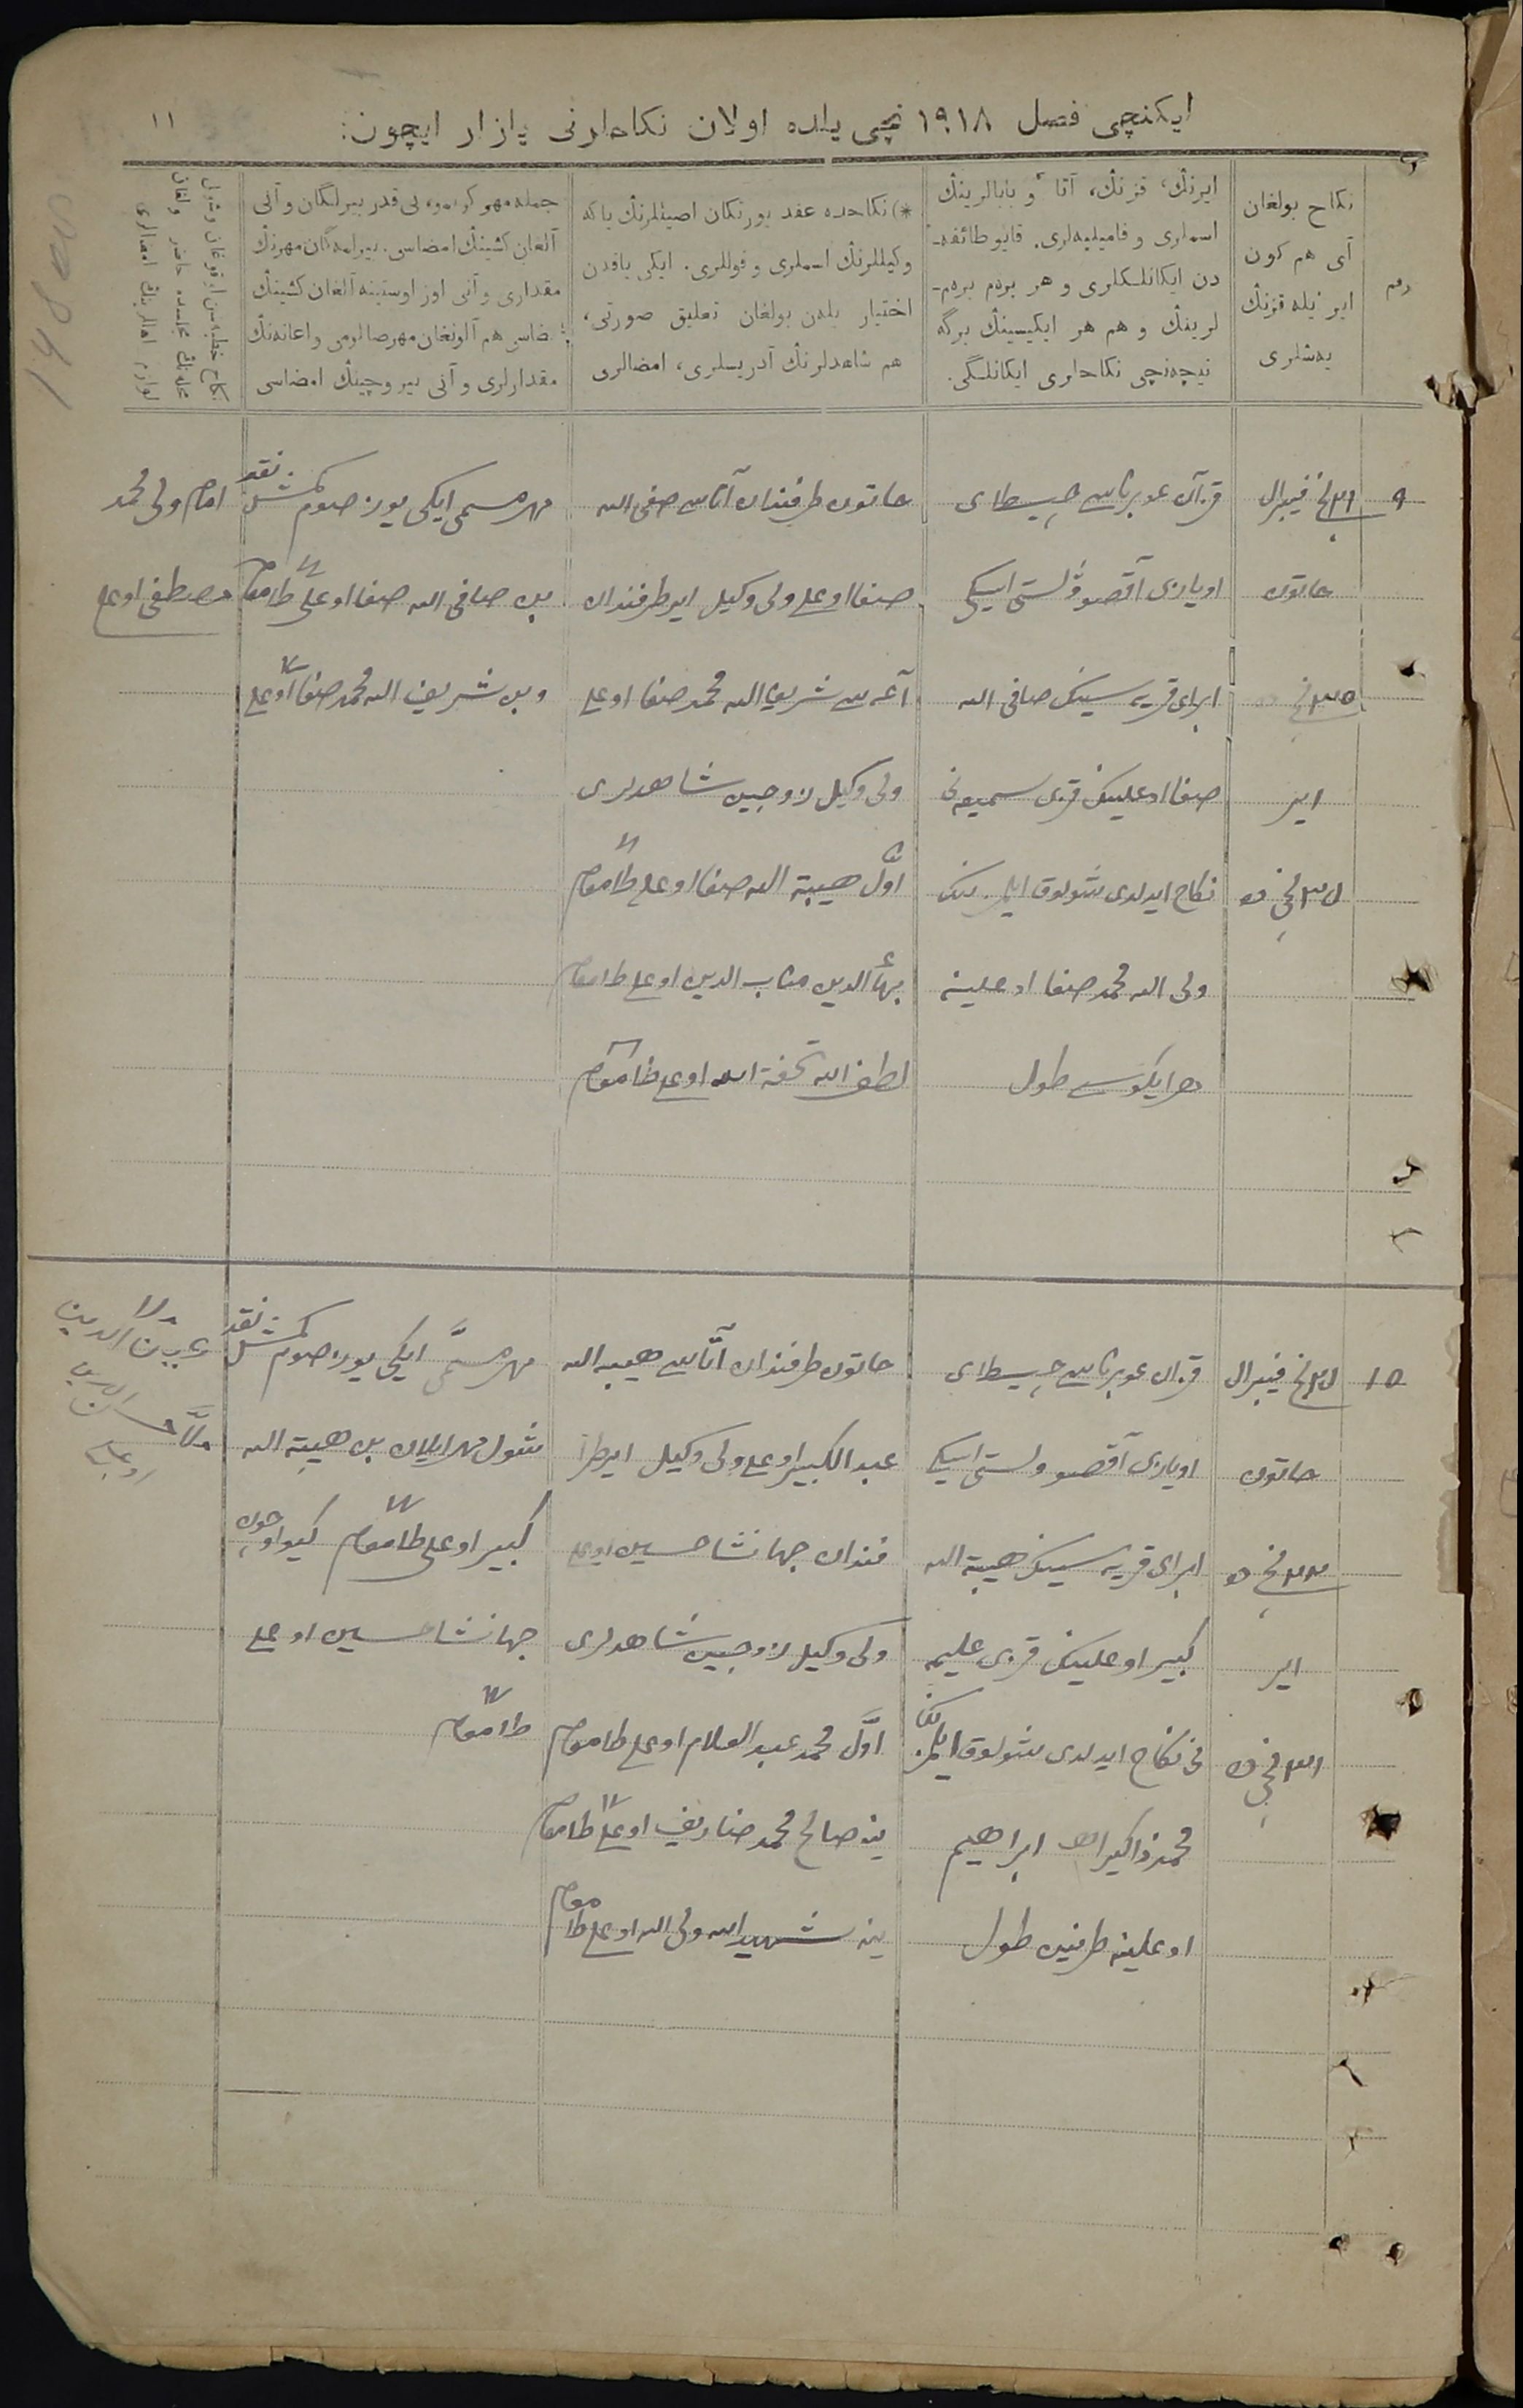 ایكنچی فصل ١٩١٨ نچی یلده اولان نكاحلرنی یازار ایچون:
١١
رقم
نكاح بولغان
آی هم كون
ایر ئیله قزنڭ
یەشلری
ایرنڭ، قزنڭ، آتا و بابالرینڭ
اسملری و فامیلیەلری. قایو طائفه-
دن ایكانلكلری و هر بردم بردم-
لرینڭ و هم هر ایكیسینڭ برگه
نیچەنچی نكاحلری ایكانلگی.
*) نكاحده عقد یورتكان اصیللرنڭ یاكه
وكیللرنڭ اسملری و قوللری. ایكی یاقدن
اختیار بلەن بولغان تعلیق صورتی،
هم شاهدلرنڭ آدریسلری، امضالری
جمله مهر كوبمو، نی قدر بیرلگان و آنی
آلغان كشینڭ امضاسی. بیرلمەگان مهرنڭ
مقداری و آنی اوز اوستینه آلغان كشینڭ
امضاسی هم آلونغان مهر صالومی و اعانەنڭ
مقدارلری و آنی بیروچینڭ امضاسی
٩
٢١ نچی فیبرال
خاتون
ایر
قزان غوبرناسی چیسطای
اویازی آقصو ولستی ایسكی
ابرای قریه سینك صافی الله
صفا اوغلینك قزی سمیعه نی
نكاح ایدلدی شولوق ایلنڭ
ولی الله محمد صفا اوغلینه
هر ایكوسی طول
خاتون طرفندان آتاسی صفی الله
صفا اوغلی ولی وكیل ایر طرفندان
آغەسی شریف الله محمد صفا اوغلی
ولی وكیل لازوجین شاهدلری
اوّل هیبة الله صفا اوغلی طامغام
بهاءالدین اوغلی طامغام
لطف الله تحفة الله اوغلی طامغام
مهر مسمی ایكی یوز صوم كمش نقد
بن صافی الله صفا اوغلی طامغام
و بن شریف الله محمد صفا اوغلی
امام ولی محمد
مصطفی اوغلی
١٠
فیبرال
خاتون
ایر
قزان غوبرناسی چیسطای
اویازی آقصو ولستی ایسكی
ابرای قریه سینك هیبة الله
كبیر اوغلینك قزی علیمه
نی نكاح ایدلدی شولوق ایلنڭ
محمد ذاكیر ابراهیم
اوغلینه طرفین طول
خاتون طرفندان آتاسی هیبه الله
عبد الكبیر اوغلی ولی وكیل ایر طر
فندان جهانشا حسین اوغلی
ولی وكیل لازوجین شاهدلری
اوّل محمد عبد العلام اوغلی طامغام
ینه صالح محمد ضاریف اوغلی طامغام
ینه شهید الله ولی الله اوغلی طامغام
مهر مسمّی ایكی یوز صوم كمش نقد
شول مهر بن هیبة الله
كبیر اوغلی طامغام كیو اوچون
جهانشا حسین اوغلی
طامغام
ملا
الدین
ملا حسن الدین
اوغلی